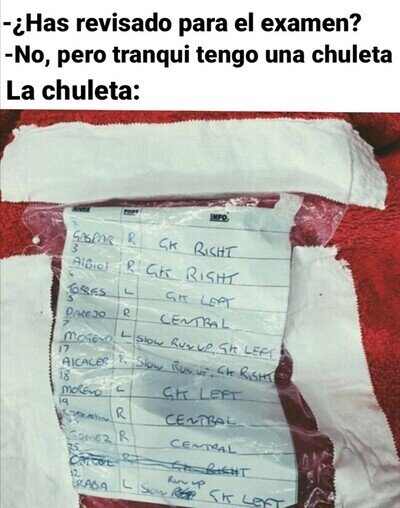 -¿Has revisado para el examen?
-No, pero tranqui tengo una chuleta
La chuleta:
FOOT INFO.
GASPAR R GK RIGHT
3
Albiol R GK RIGHT
4
TORRES L GK LEFT
5
PAREJO R CENTRAL
7
MORENO L SLOW RUN UP, GK LEFT
17
ALCACER SLOW RUN UP. GK RIGHT
18
MORENO L GK LEFT
19
R CENTRAL
GOMEZ R CENTRAL
GK RIGHT
12
RABA L SLOW RUN UP GK LEFT